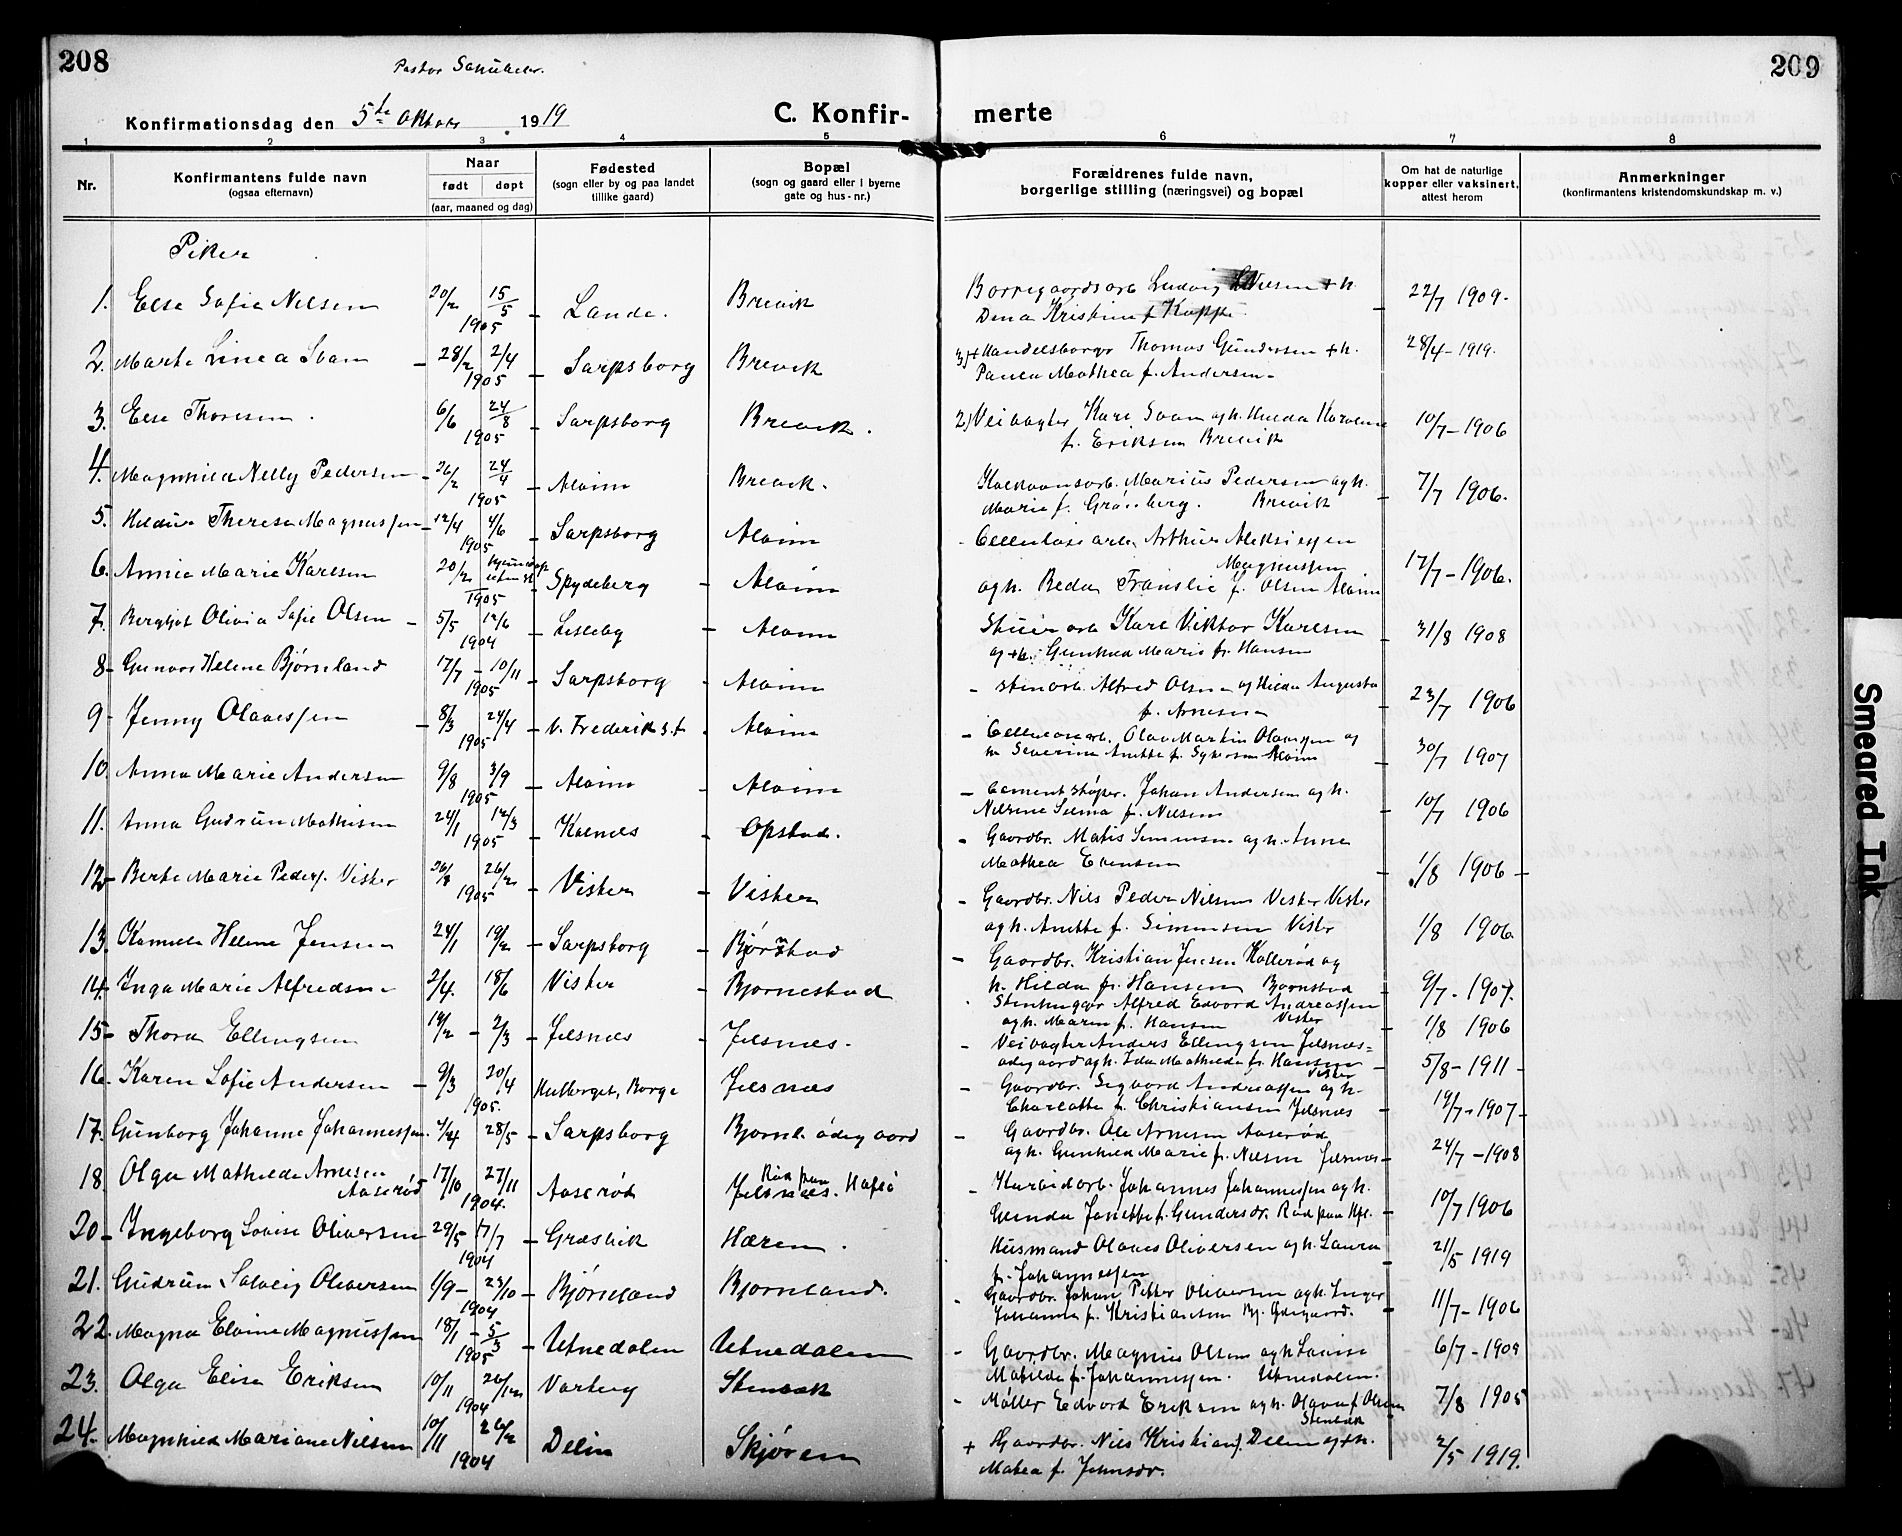 208
209
Pastor Schübeler.
Konfirmationsdag den 5te Oktober 1919
C. Konfir-
merte
1 2 3 4 5 6 7 8
Nr.
Konfirmantens fulde navn
(ogsaa efternavn)
Naar
født døpt
(aar, maaned og dag)
Fødested
(sogn eller by og paa landet
tillike gaard)
Bopæl
(sogn og gaard eller i byerne
gate og hus-nr.)
Forældrenes fulde navn,
borgerlige stilling (næringsvei) og bopæl
Om hat de naturlige
kopper eller vaksinert,
attest herom
Anmerkninger
(konfirmantens kristendomskundskap m. v.)
Piker
1. Else Sofie Nilsen 20/2 15/5 1905 - Lande. Brevik
2. Marte Linea Svan - 28/2 2/4 1905 - Sarpsborg Brevik
3. Else Thoresen. 6/6 24/8 1905 - Sarpsborg Brevik.
4. Magnhild Nelly Pedersen - 26/2 24/4 1905 - Alvim Brevik.
5. Theresa Magnussen - 12/4 4/6 1905 - Sarpsborg Alvim
6. Annie Marie Karlsen 20/2 1905 - Spydeberg - Alvim
7. Bergljot Olivia Sofie Olsen - 5/5 12/6 1904 - Lisleby - Alvim
8 - Gunvor Helene Bjørnland 17/7 - 10/11 1905 - Sarpsborg - Alvim
9 - Jenny Olavessen - 8/3 24/4 1905 - V. Frederikst. Alvim
10. Anna Marie Andersen 9/8 3/9 1905 - Alvim - Alvim
11. Anna Gudrun Mathisen 24/1 12/3 1905 - Kalnes - Opstad.
12 - Berte Marie Peders. Visker 26/2 1905 - Visker - Visker
13. Kamilla Helene Jensen 24/1 19/2 - Sarpsborg - Bjørnstad
14. Inga Marie Alfredsen 2/4. 18/6 Visker - Bjørnestad
15 - Thora Ellingsen 14/2 - 2/3 - Jelsnes - Jelsnes.
16. Karen Sofie Andersen - 9/3 20/4 1905. Borge Jelsnes
17. Gunborg Johanne Johannessen. 28/5 - Sarpsborg Bjornl. ødegaard
18. Olga Mathilde Arnesen
Aaserød 17/10 27/11 1904. Aaserød Jelsnes. Rød paa Hafsl.
20 - Ingeborg Lovise Oliversen 29/5 17/7 1904 - Græsvik Haren.
21. Gudrun Solveig Oliversen 1/9 - 23/10 1904 - Bjørnland Bjornland.
22. Magna Elvine Magnussen 18/1 - 5/3 1905 - Utnedalen Utnedalen
23. Olga Elise Eriksen 10/11 26/12 1904 - Varberg Stenbæk
24. Magnhild Mariane Nilsen 10/11 26/2 1904 Delin Skjøren
Borregaardsarb. Ludvig Nilsen + h.
Dina Kristine f. Koppe. - 22/7 1909.
3) + Handelsborger Thomas Gundersen + h. 28/4 - 1919.
Paula Mathea f. Andersen -
2) Veivagter Karl Svan og h. Hilda Karoline 10/7 - 1906
f. Eriksen Brevik
Marius Pedersen og h. 7/7 1906.
Marie f. Grønberg. Brevik
- Cellulosearb. Arthur Aleksissen
Magnussen 17/7 - 1906.
og h. Beda f. Olsen Alvim
Karl Viktor Karlsen - 31/8 1908
og h. Gunhild Marie f. Hansen
- Stenarb. Alfred Olsen og Hilda Augusta 23/7 1906
f. Arnesen
- Cellulosearb. Olav Martin Olavessen og
h. Severine Anette f. Alvim - 30/7 1907
- Cementstøper. Johan Andersen og h.
Nilsine Selma f. Nilsen - 10/7 1906
- Gaardbr. Matis Simensen og h. Anne
Mathea Evensen 1/8 1906 -
- Gaardbr. Nils Peder Nilsen Visker Visker
og h. Anette f. Simensen Visker 1/8 1906
- Gaardbr. Kristian Jensen Kallerød og
h. Hilda f. Hansen Bjørnstad 9/7 - 1907.
Stenhugger Alfred Edvard Andreassen
og h. Maren f. Hansen Visker - 1/8 1906
- Veivagter Anders Ellingsen Jelsnes-
ødegaard og h. Ida Mathilde f. Hansen - 5/8 - 1911 -
- Gaardbr. Sigvard Andreassen og h.
Charlotte f. Christiansen Jelsnes - 14/7 - 1907 -
- Gaardbr. Ole Arnesen Aaserød
og h. Gunhild Marie f. Nilsen Jelsnes - 24/7 - 1908
- Karbidarb. Johannes Johannessen og h.
Gunda Janette f. Gundersdr. Rød paa Hfl. 10/7 1906
Husmand Olaves Oliversen og h. Laura 21/5 1919
f. Johannessen
- Gaardbr. Johan Petter Oliversen og h. Inger
Johanne f. Kristiansen Bj. Ødegaard. - 11/7 - 1906
- Gaardbr. Magnus Olsen og h. Lovise 6/7 - 1909
Matilde f. Johannessen. Utnedalen.
- Møller Edvard Eriksen og h. Olava f. Olsen 7/8 1905
Stenbæk
+ Gaardbr. Nils Kristian J. Delin og + h.
Matea f. Johnsdr. 2/5 1919.
Smeared Ink